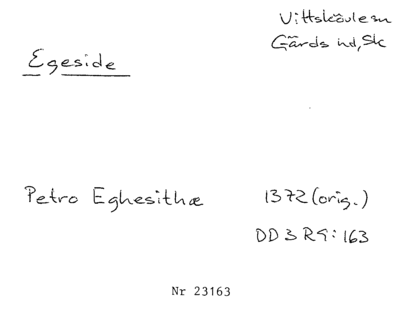 Vittskövle sn
Gärds hd, Sk
Egeside
Petro Eghesithæ 1372 (orig.)
DD 3 R 9: 163
Nr 23163